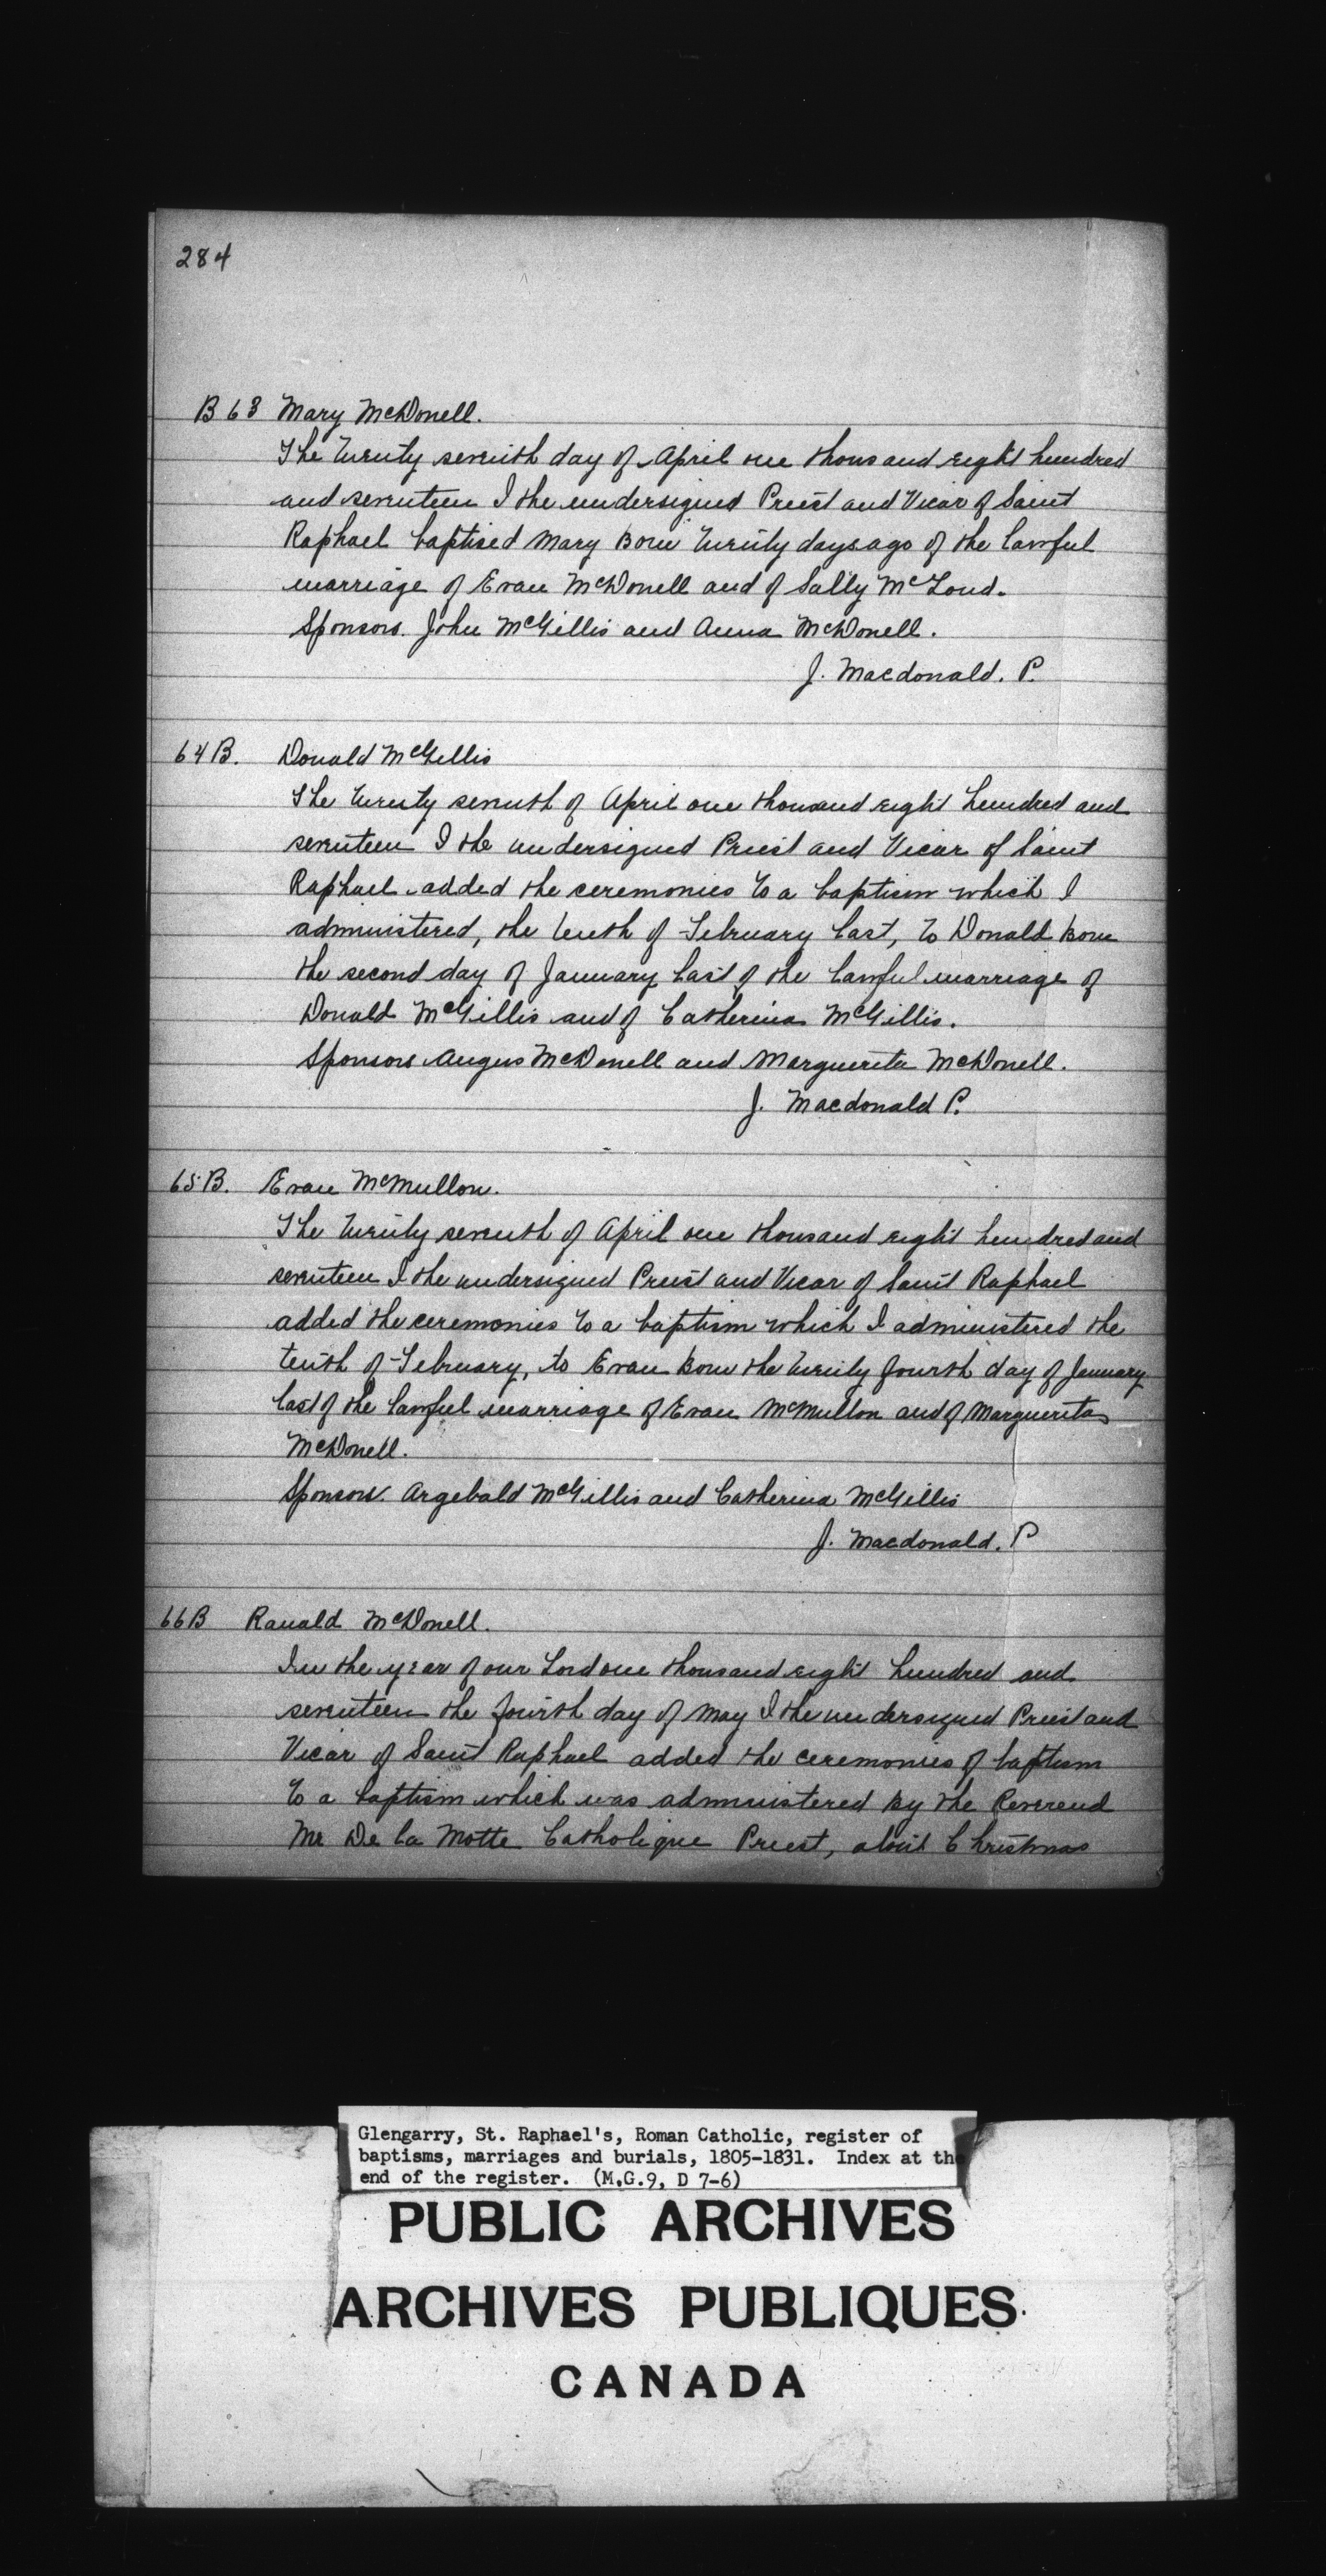 284
B 63 Mary McDonell.
The twenty seventh day of April one thousand eight hundred
and seventeen I the undersigned Priest and Vicar of Saint
Raphael baptised Mary Born twenty days ago of the lawful
marriage of Evan McDonell and of Sally McLoud.
Sponsors. John McGillis and Anna McDonell.
J. Macdonald. P.
64 B. Donald McGillis
The twenty seventh of April one thousand eight hundred and
seventeen I the undersigned Priest and Vicar of Saint
Raphael added the ceremonies to a baptism which I
administered, the tenth of February last, to Donald born
the second day of January last of the lawful marriage of
Donald McGillis and of Catherina McGillis.
Sponsors Angus McDonell and Marguerita McDonell.
J. Macdonald P.
65 B. Evan McMullon.
The twenty seventh of April one thousand eight hundred and
seventeen I the undersigned Priest and Vicar of Saint Raphael
added the ceremonies to a baptism which I administered the
tenth of February, to Evan born the twenty fourth day of January
last of the lawful marriage of Evan McMullon and of Marguerita
McDonell.
Sponsors. Argebald McGillis and Catherina McGillis
J. Macdonald. P
66 B Ranald McDonell.
In the year of our Lord one thousand eight hundred and
seventeen the fourth day of May I the undersigned Priest and
Vicar of Saint Raphael added the ceremonies of baptism
to a baptism which was administered by the Reverend
Mr De la Motte Catholique Priest, about Christmas
Glengarry, St. Raphael's, Roman Catholic, register of
baptisms, marriages and burials, 1805-1831. Index at the
end of the register. (M.G.9, D 7-6)
PUBLIC ARCHIVES
ARCHIVES PUBLIQUES
CANADA